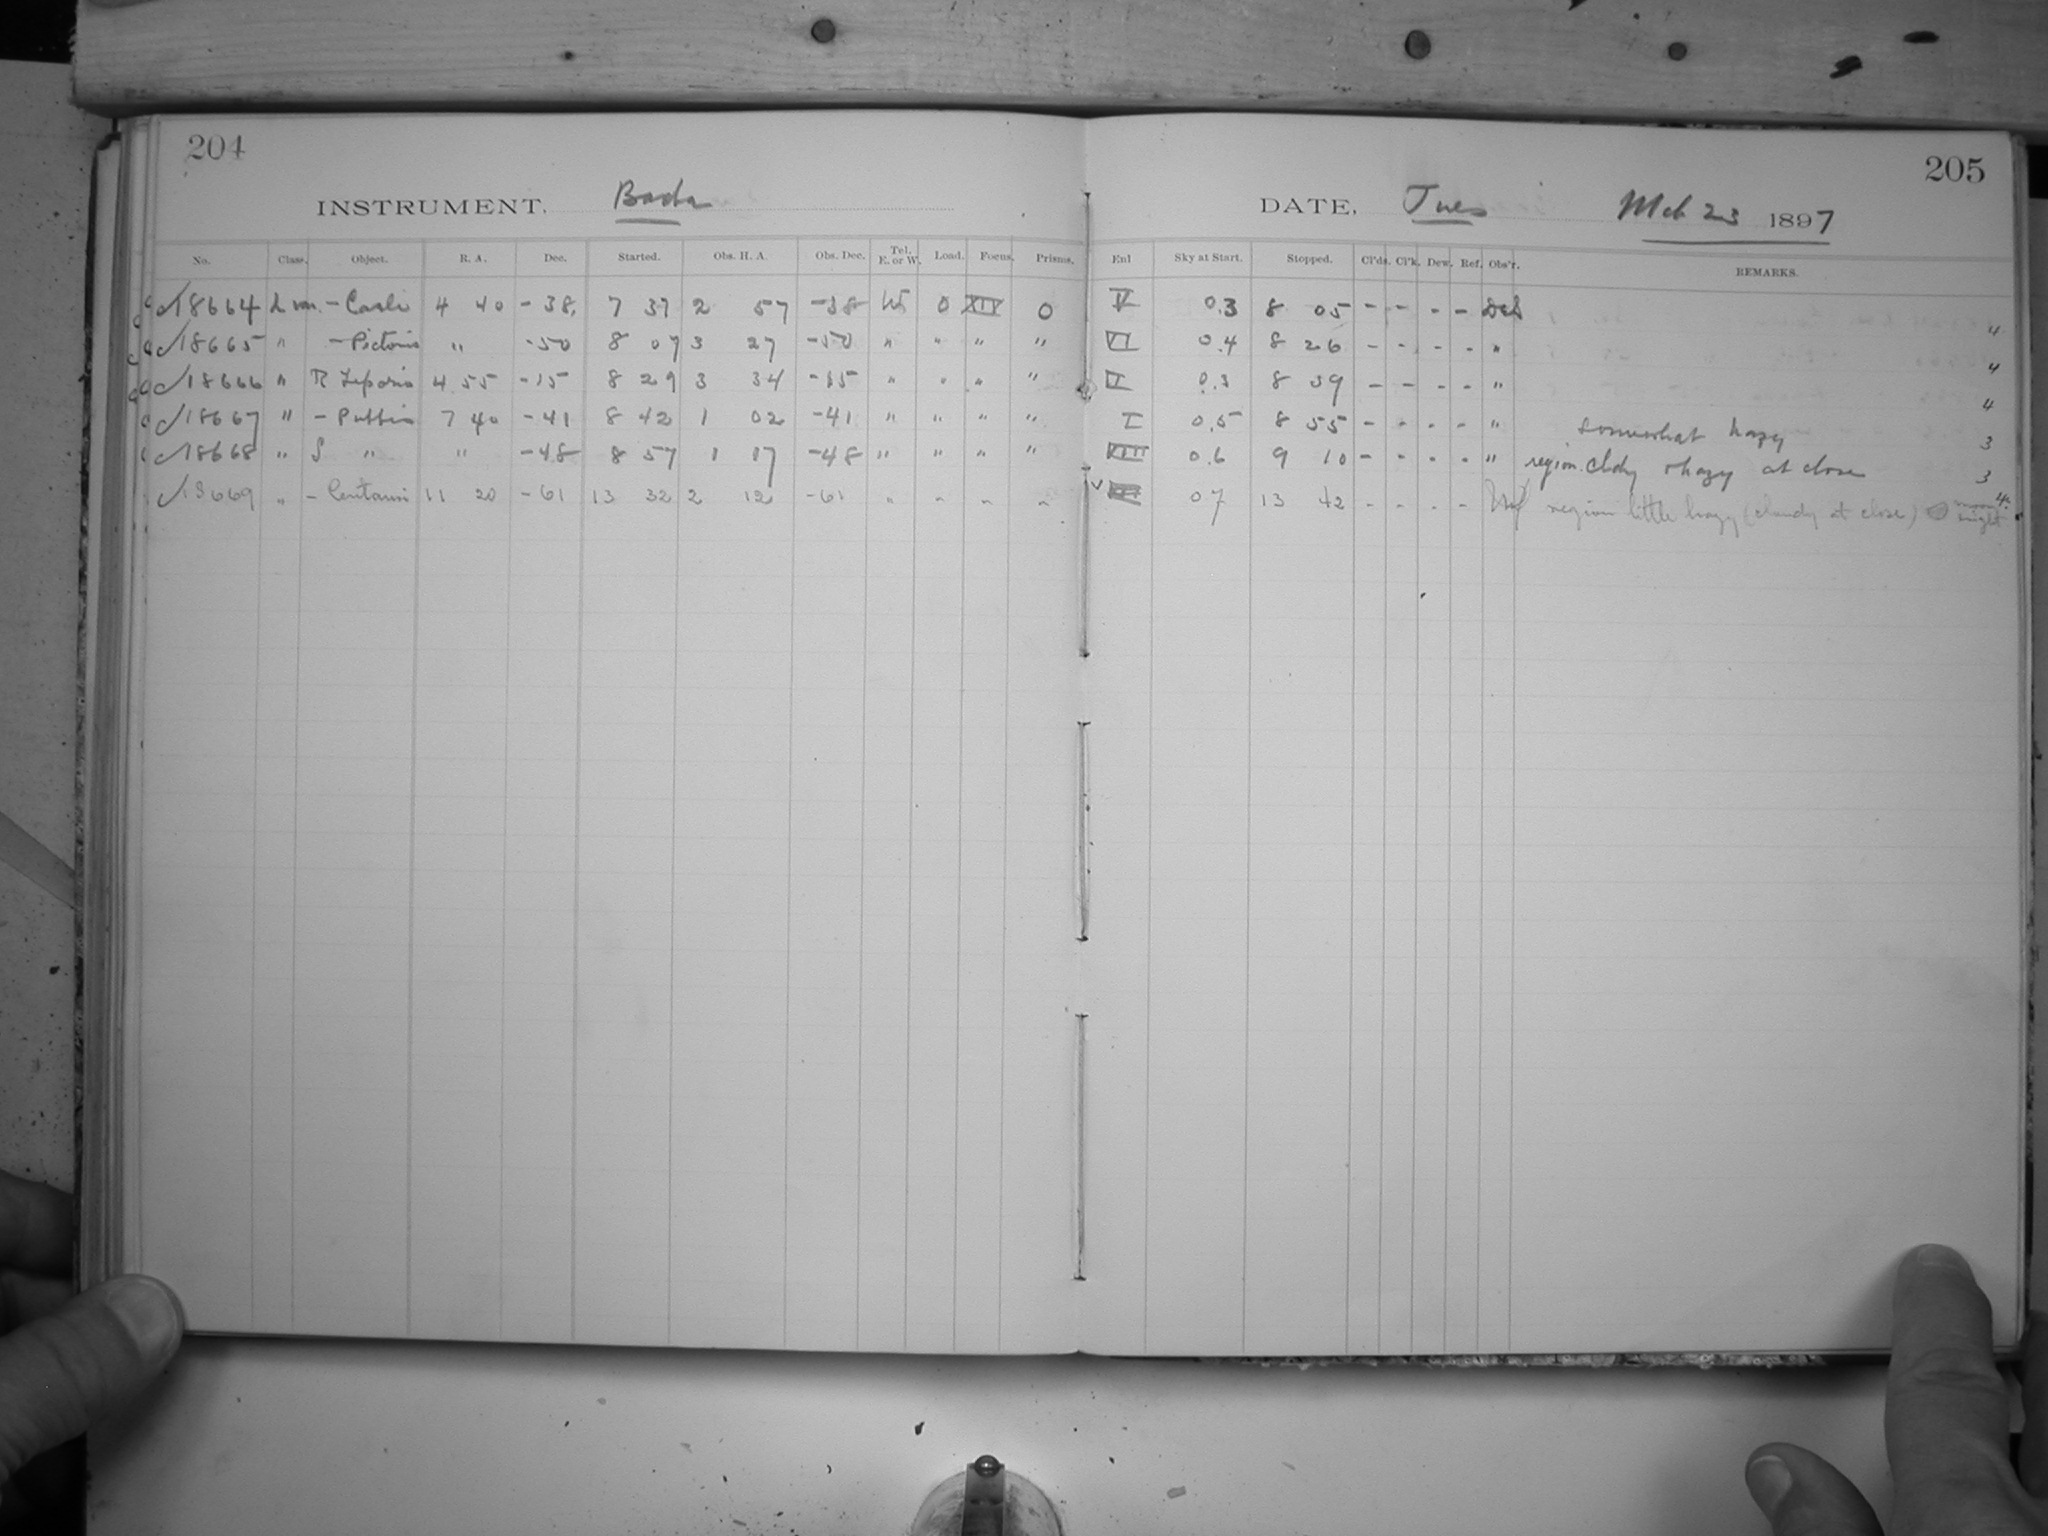 204
INSTRUMENT. Bache
No. Class. Object. R. A. Dec. Started. Obs. H. A. Obs. Dec. Tel. E. or W. Load. Focus. Prisms.
18664 L var. - Caeli 4 40 -38 7 37 2 57 -38 W 0 XIV 0
18665 " - Pictoris " -50 8 07 3 27 -50 " " " "
18666 " R Leporis 4 55 -15 8 29 3 34 -15 " " " "
18667 " - Puppis 7 40 -41 8 42 1 02 -41 " " " "
18668 " S " " -48 8 57 1 17 -48 " " " "
18669 " - Centauri 11 20 -61 13 32 2 12 -61 " " " "
205
DATE, Tues Mch 23 1897
Enl Sky at Start. Stopped. Cl'ds. Cl'k. Dew. Ref. Obs'r. REMARKS.
V 0.3 8 05 - - - - 4
VI 0.4 8 26 - - - - " 4
0.3 8 39 - - - - " 4
I 0.5 8 55 - - - - " somewhat hazy 3
VIII 0.6 9 10 - - - - " region cldy & hazy at close 3
07 13 42 - - - - region little hazy (cloudy at close) moon night 4